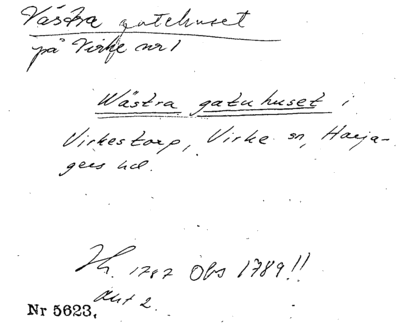 Västra gatehuset
på Virke nr 1
Wästra gatuhuset i
Virkestorp, Virke sn, Harja-
gers hd.
Hh. 1787 Obs 1789!!
Akt 2.
Nr 5623,